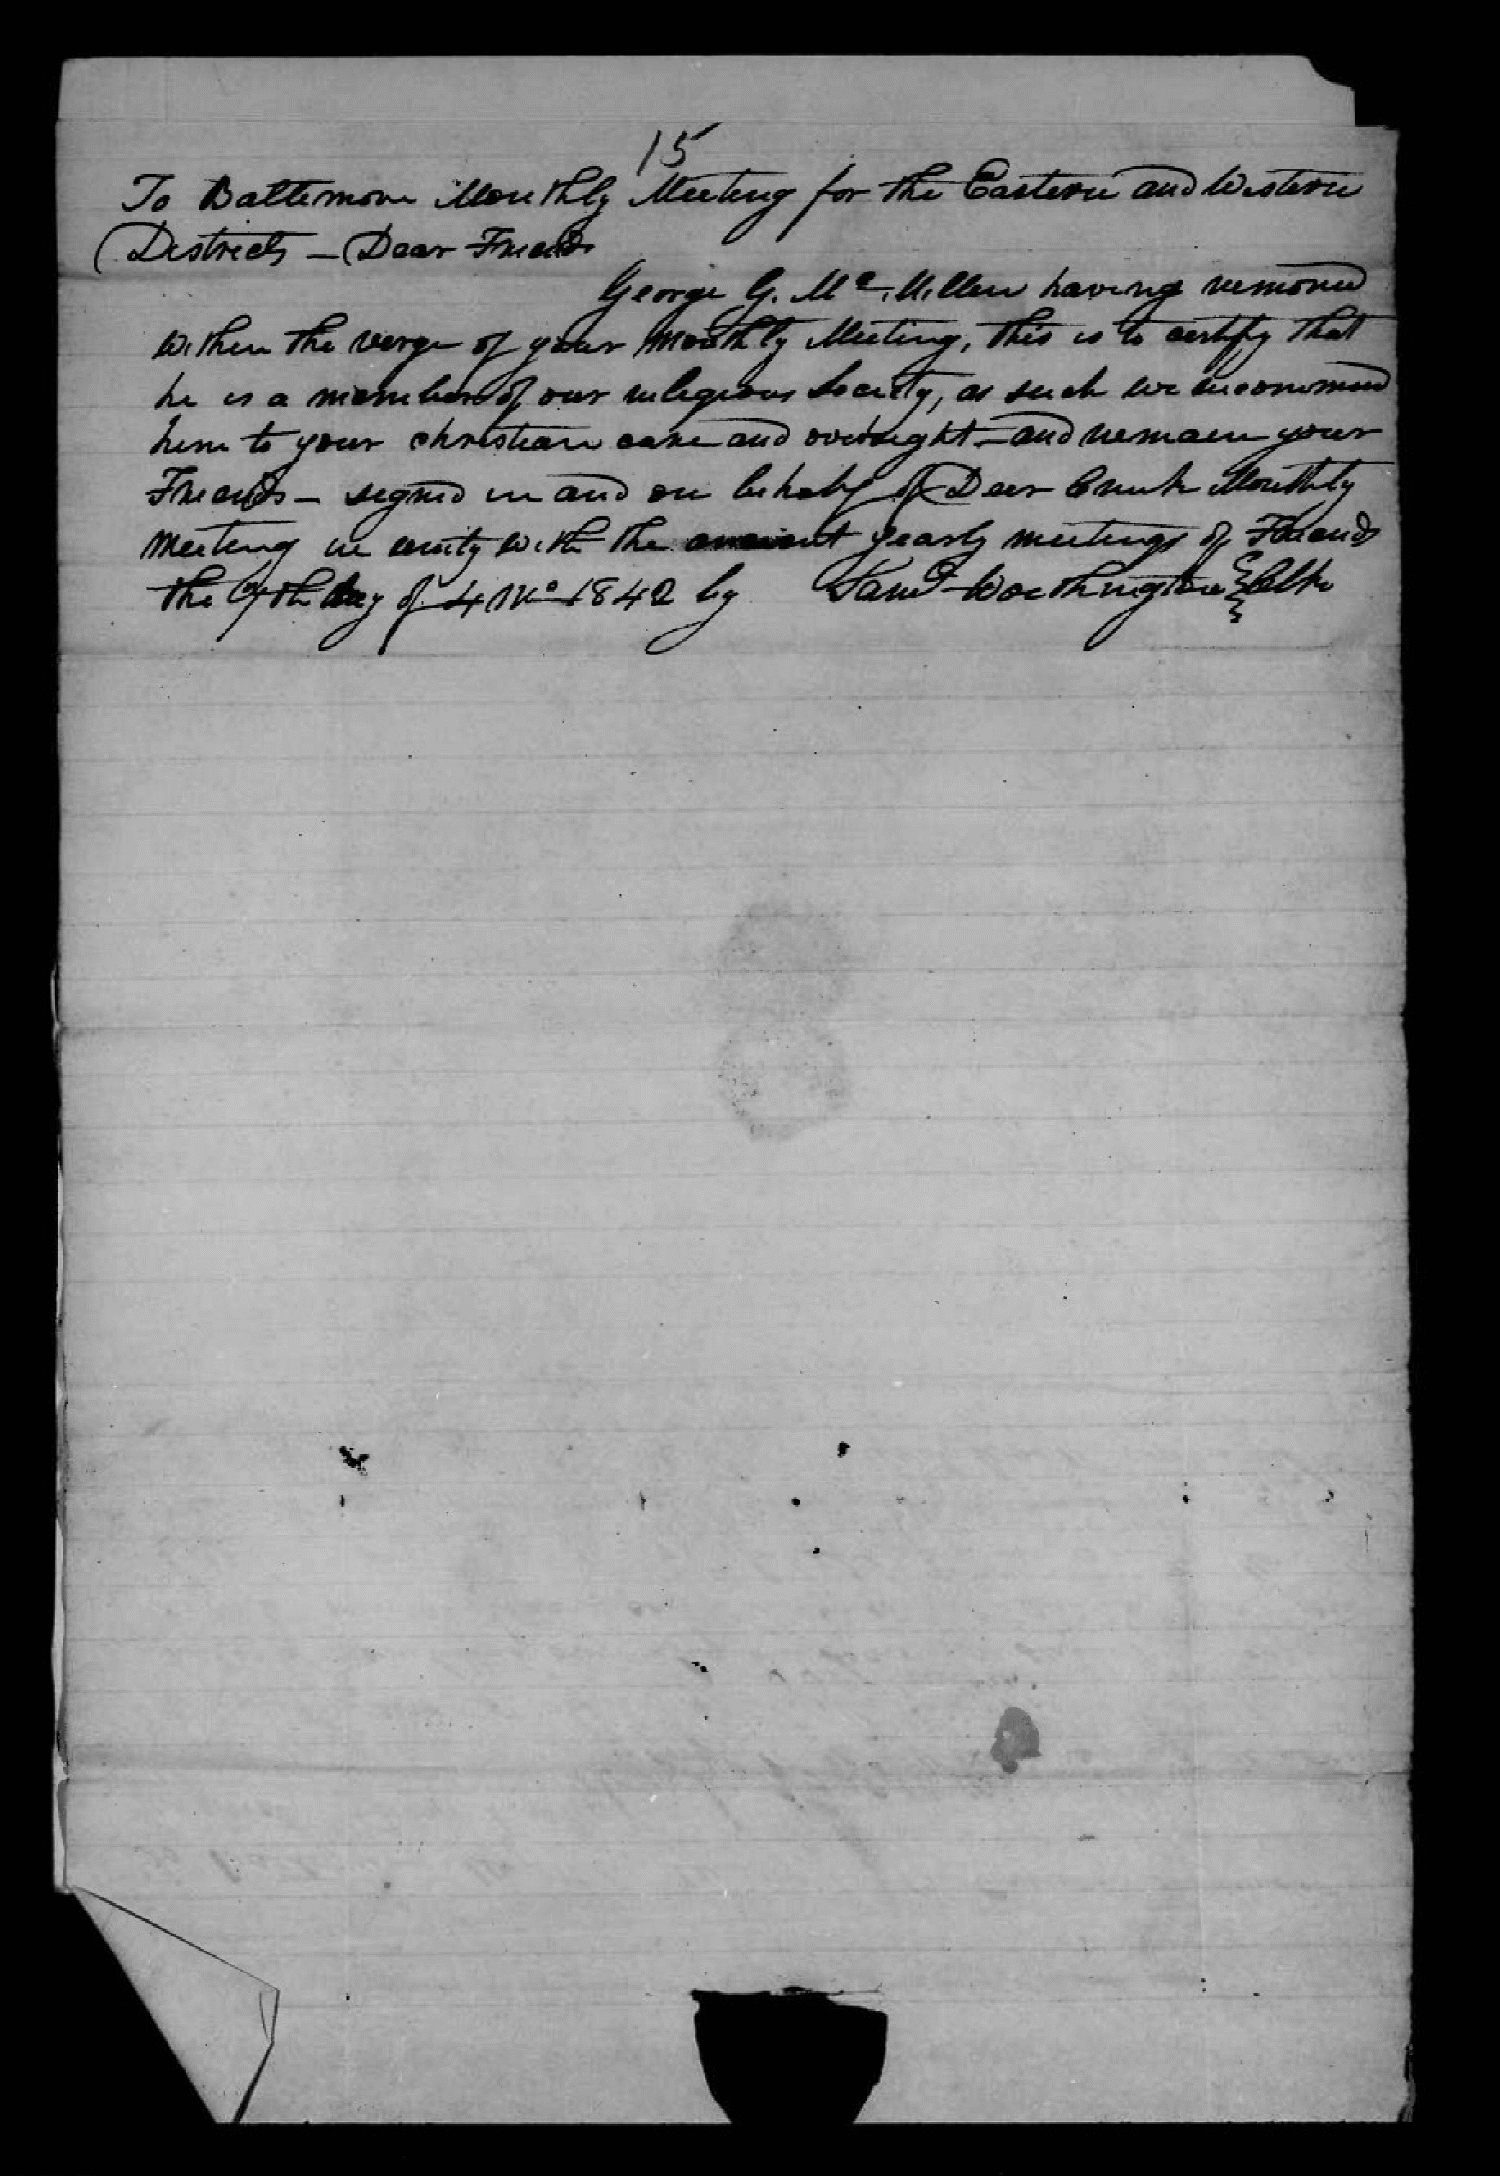 15
To Baltimore Monthly Meeting for the Eastern and Western
Districts – Dear Friends
George G. Mc.Millen having removed
within the verge of your Monthly Meeting, this is to certify that
he is a member of our religious Society, as such we recommend
him to your christian care and oversight – and remain your
Friends – signed in and on behalf of Deer Creek Monthly
Meeting in unity with the ancient yearly meetings of Friends
the 7th day of 4 Mo 1842 by Saml Worthington Clk